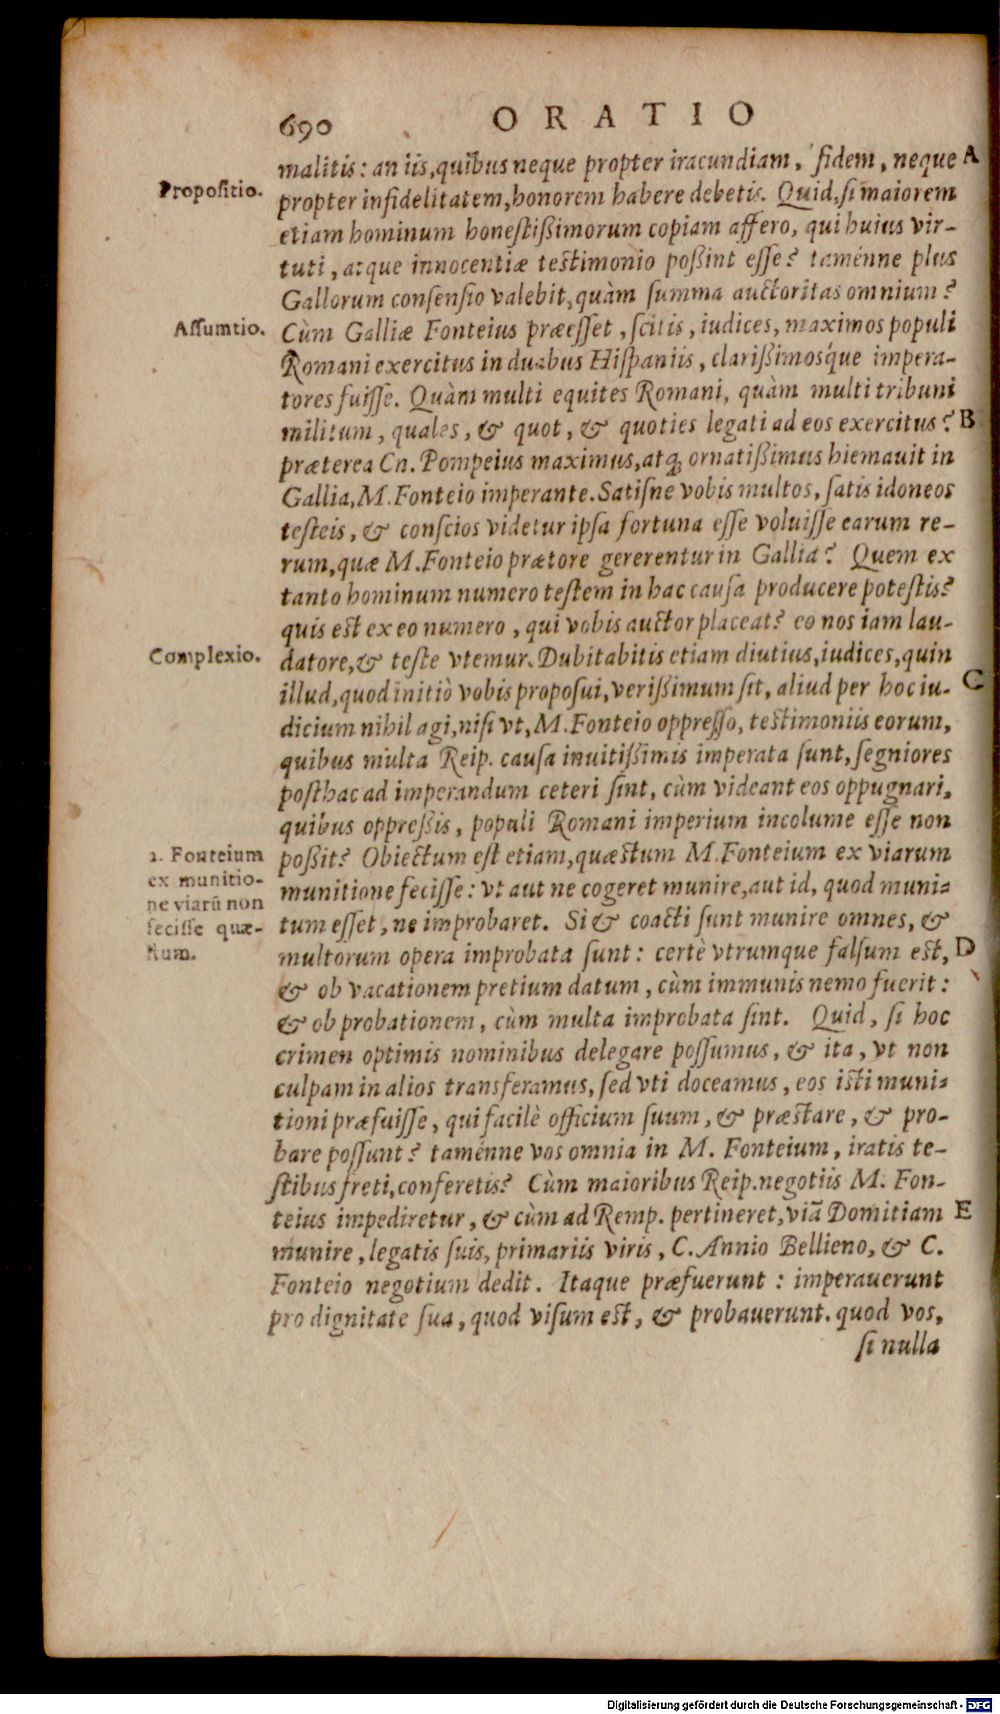 690 ORATIO
malitis: an iis, quibus neque propter iracundiam, fidem, neque A
Propositio.
propter infidelitatem, honorem habere debetis. Quid, si maiorem
etiam hominum honestißimorum copiam affero, qui huius vir-
tuti, atque innocentiæ testimonio poßint esse? taménne plus
Gallorum consensio valebit, quàm summa auctoritas omnium?
Assumtio.
Cùm Galliæ Fonteius præesset, scitis, iudices, maximos populi
Romani exercitus in duabus Hispaniis, clarißimosq́ue impera-
tores fuisse. Quàm multi equites Romani, quàm multi tribuni
militum, quales, & quot, & quoties legati ad eos exercitus? B
præterea Cn. Pompeius maximus, atq; ornatißimus hiemauit in
Gallia, M. Fonteio imperante. Satisne vobis multos, satis idoneos
testeis, & conscios videtur ipsa fortuna esse voluisse earum re-
rum, quæ M. Fonteio prætore gererentur in Gallia? Quem ex
tanto hominum numero testem in hac causa producere potestis?
quis est ex eo numero, qui vobis auctor placeat? eo nos iam lau-
Complexio.
datore, & teste vtemur. Dubitabitis etiam diutius, iudices, quin
illud, quod initiò vobis proposui, verißimum sit, aliud per hoc iu- C
dicium nihil agi, nisi vt, M. Fonteio oppresso, testimoniis eorum,
quibus multa Reip. causa inuitißimis imperata sunt, segniores
posthac ad imperandum ceteri sint, cùm videant eos oppugnari,
quibus oppreßis, populi Romani imperium incolume esse non
1. Fonteium
ex munitio-
ne viarũ non
fecisse quæ-
stum.
poßit? Obiectum est etiam, quæstum M. Fonteium ex viarum
munitione fecisse: vt aut ne cogeret munire, aut id, quod muni-
tum esset, ne improbaret. Si & coacti sunt munire omnes, &
multorum opera improbata sunt: certè vtrumque falsum est, D
& ob vacationem pretium datum, cùm immunis nemo fuerit:
& ob probationem, cùm multa improbata sint. Quid, si hoc
crimen optimis nominibus delegare possumus, & ita, vt non
culpam in alios transferamus, sed vti doceamus, eos isti muni-
tioni præfuisse, qui facilè officium suum, & præstare, & pro-
bare possunt? taménne vos omnia in M. Fonteium, iratis te-
stibus freti, conferetis? Cùm maioribus Reip. negotiis M. Fon-
teius impediretur, & cùm ad Remp. pertineret, viã Domitiam E
munire, legatis suis, primariis viris, C. Annio Bellieno, & C.
Fonteio negotium dedit. Itaque præfuerunt: imperauerunt
pro dignitate sua, quod visum est, & probauerunt. quod vos,
si nulla
Digitalisierung gefördert durch die Deutsche Forschungsgemeinschaft - DFG